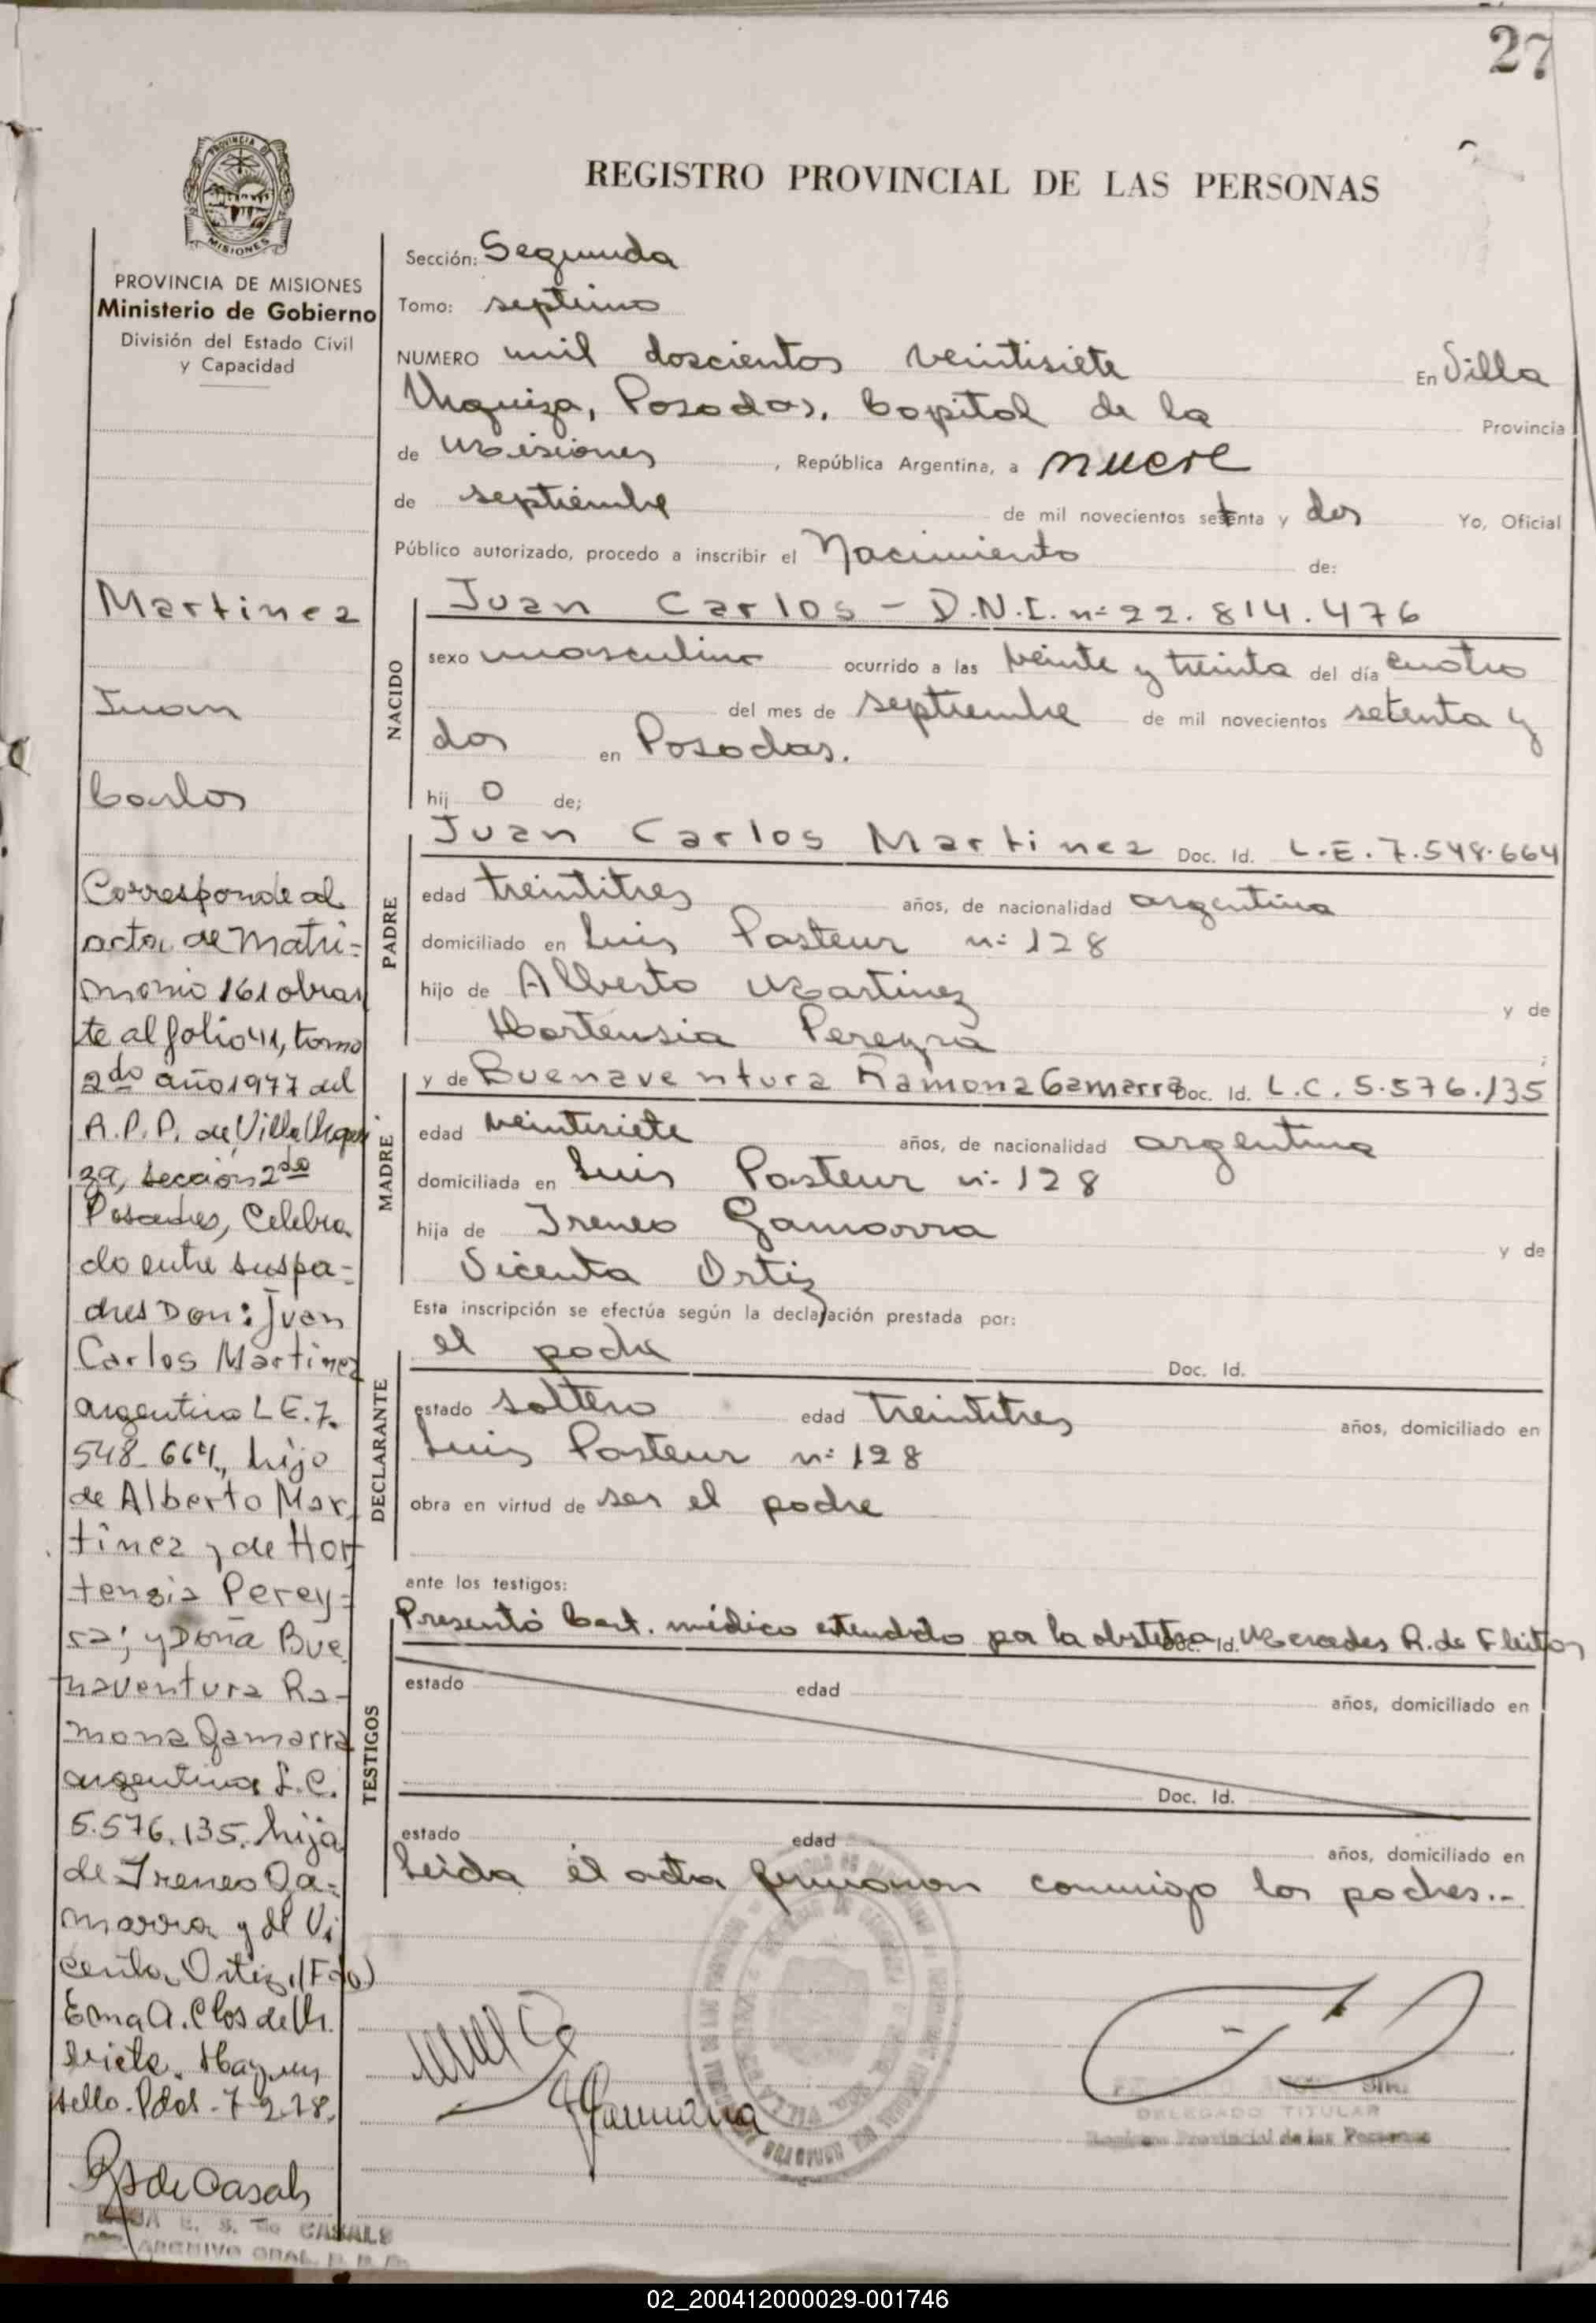 27
REGISTRO PROVINCIAL DE LAS PERSONAS
PROVINCIA DE MISIONES
Ministerio de Gobierno
División del Estado Civil
y Capacidad
Martinez
Juan
Carlos
Corresponde al
acta de Matri=
monio 161 obran
te al folio 41, tomo
2do año 1977 del
R.P.P. de Villa Urqui
za, sección 2da
Posadas, Celebra
do entre sus pa=
dres Don: Juan
Carlos Martinez
argentino L.E. 7.
548-664, hijo
de Alberto Mar
tinez y de Hor
tensia Perey=
ra; y Doña Bue
naventura Ra-
mona Gamarra
argentina L.C.
5.576.135, hija
de Ireneo Ga=
marra y de Vi
centa Ortiz, (Fdo)
Ema A. Clos de
Hay un
sello. Pdas. 7-2-78.
Sección: Segunda
Tomo: septimo
NUMERO mil doscientos veintisiete En Villa
Urquiza, Posadas, Capital de la Provincia
de Misiones, República Argentina, a nueve
de septiembre de mil novecientos setenta y dos Yo, Oficial
Público autorizado, procedo a inscribir el Nacimiento de:
NACIDO
Juan Carlos - D.N.I. nº 22.814.476
sexo masculino ocurrido a las veinte y treinta del día cuatro
del mes de septiembre de mil novecientos setenta y
dos en Posadas.
hij o de;
PADRE
Juan Carlos Martinez Doc. Id. L.E. 7.548.664
edad treintitres años, de nacionalidad argentina
domiciliado en Luis Pasteur nº 128
hijo de Alberto Martinez y de
Hortensia Pereyra ;
MADRE
y de Buenaventura Ramona Gamarra Doc. Id. L.C. 5.576.135
edad veintisiete años, de nacionalidad argentina
domiciliada en Luis Pasteur nº 128
hija de Ireneo Gamarra y de
Vicenta Ortiz
Esta inscripción se efectúa según la declaración prestada por:
DECLARANTE
el padre Doc. Id.
estado soltero edad treintitres años, domiciliado en
Luis Pasteur nº 128
obra en virtud de ser el padre
ante los testigos:
TESTIGOS
Presentó Cert. médico extendido por la obstetra Doc. Id. Mercedes R. de Fleitas
estado edad años, domiciliado en
Doc. Id.
estado edad años, domiciliado en
Leida el acta firmaron conmigo los padres.-
DELEGADO TITULAR
Registro Provincial de las Personas
R S de Casals
E. S. de CASALS
ARCHIVO GRAL. R. P. P.
02_200412000029-001746